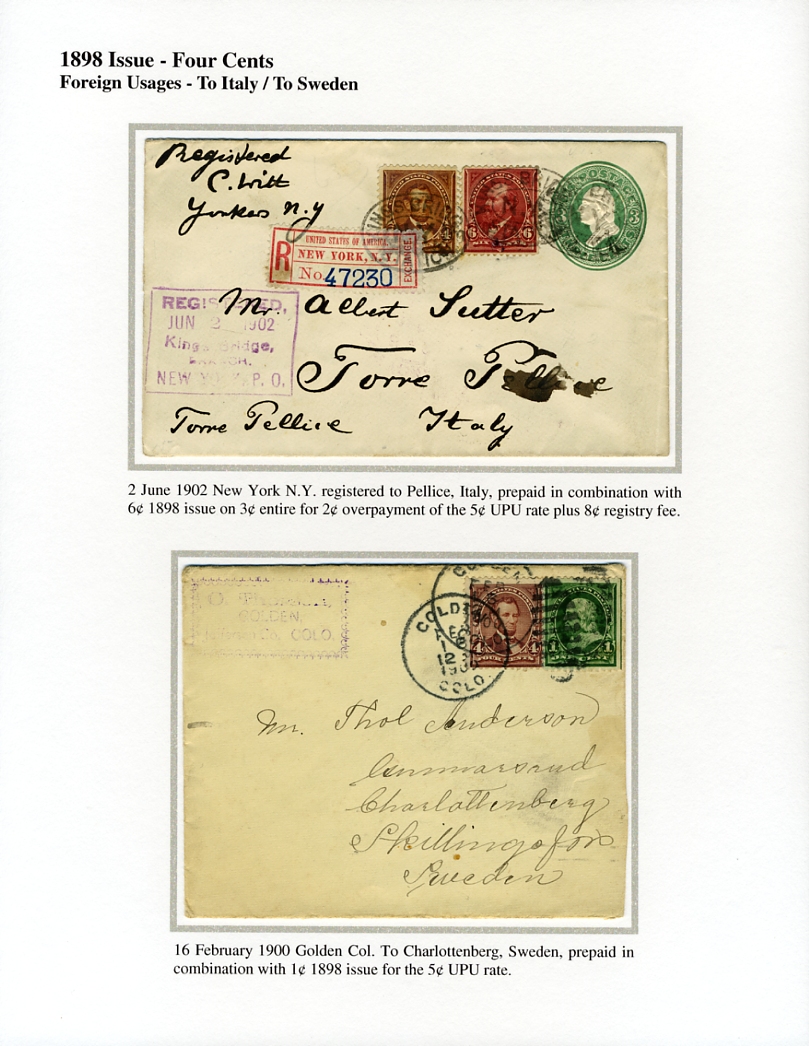 1898 Issue - Four Cents
Foreign Usages - To Italy / To Sweden
Registered
C. Witt
Yonkers N.y
POSTAGE
4
6
R
UNITED STATES OF AMERICA.
NEW YORK, N.Y.
No. 47230
EXCHANGE.
REGISTERED,
JUN 2 1902
Kings Bridge,
NEW YORK P. O.
Mr. Albert Sutter
Torre Pellice
Torre Pellice Italy
2 June 1902 New York N.Y. registered to Pellice, Italy, prepaid in combination with
6¢ 1898 issue on 3¢ entire for 2¢ overpayment of the 5¢ UPU rate plus 8¢ registry fee.
GOLDEN,
Jefferson Co. COLO.
GOLDEN
FEB
16
12
COLO.
4 4
FOUR CENTS
1 1
Mr. Thol Anderson
Gunnarsrud
Charlottenberg
Skillingsfors
Sweden
16 February 1900 Golden Col. To Charlottenberg, Sweden, prepaid in
combination with 1¢ 1898 issue for the 5¢ UPU rate.